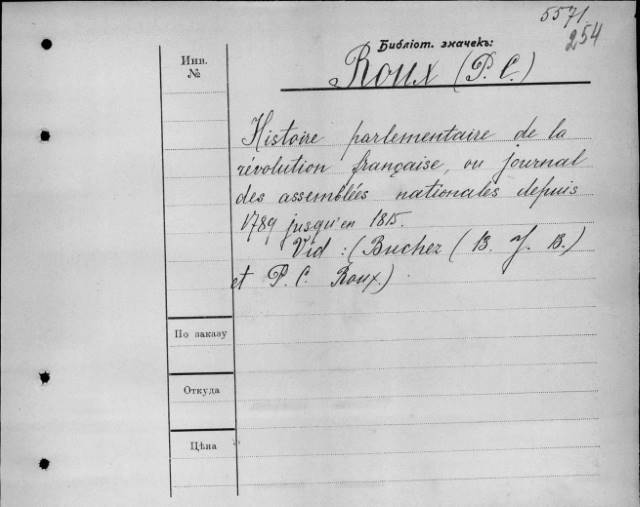 5571
254
Библіот. значекъ:
Roux (P. C.)
Инв.
№
Histoire parlementaire de la
révolution française, ou journal
des assemblées nationales depuis
1789 jusqu'en 1815.
Vid : (Buchez (B. J. B.)
et P. C. Roux.)
По заказу
Откуда
Цѣна